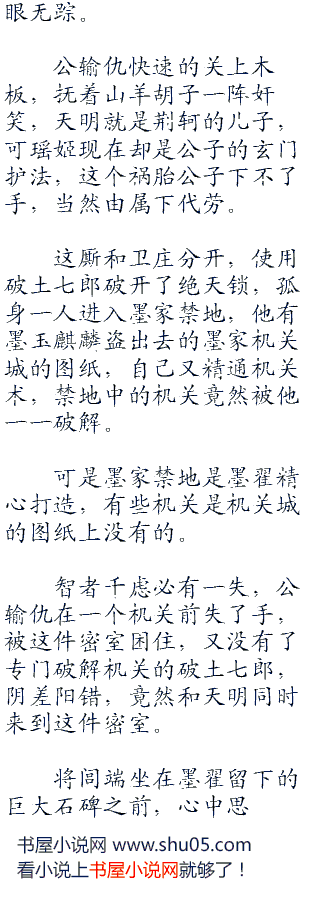 眼无踪。
公输仇快速的关上木
板，抚着山羊胡子一阵奸
笑，天明就是荆轲的儿子，
可瑶姬现在却是公子的玄门
护法，这个祸胎公子下不了
手，当然由属下代劳。
这厮和卫庄分开，使用
破土七郎破开了绝天锁，孤
身一人进入墨家禁地，他有
墨玉麒麟盗出去的墨家机关
城的图纸，自己又精通机关
术，禁地中的机关竟然被他
一一破解。
可是墨家禁地是墨翟精
心打造，有些机关是机关城
的图纸上没有的。
智者千虑必有一失，公
输仇在一个机关前失了手，
被这件密室困住，又没有了
专门破解机关的破土七郎，
阴差阳错，竟然和天明同时
来到这件密室。
将闾端坐在墨翟留下的
巨大石碑之前，心中思
书屋小说网 www.shu05.com
看小说上书屋小说网就够了！